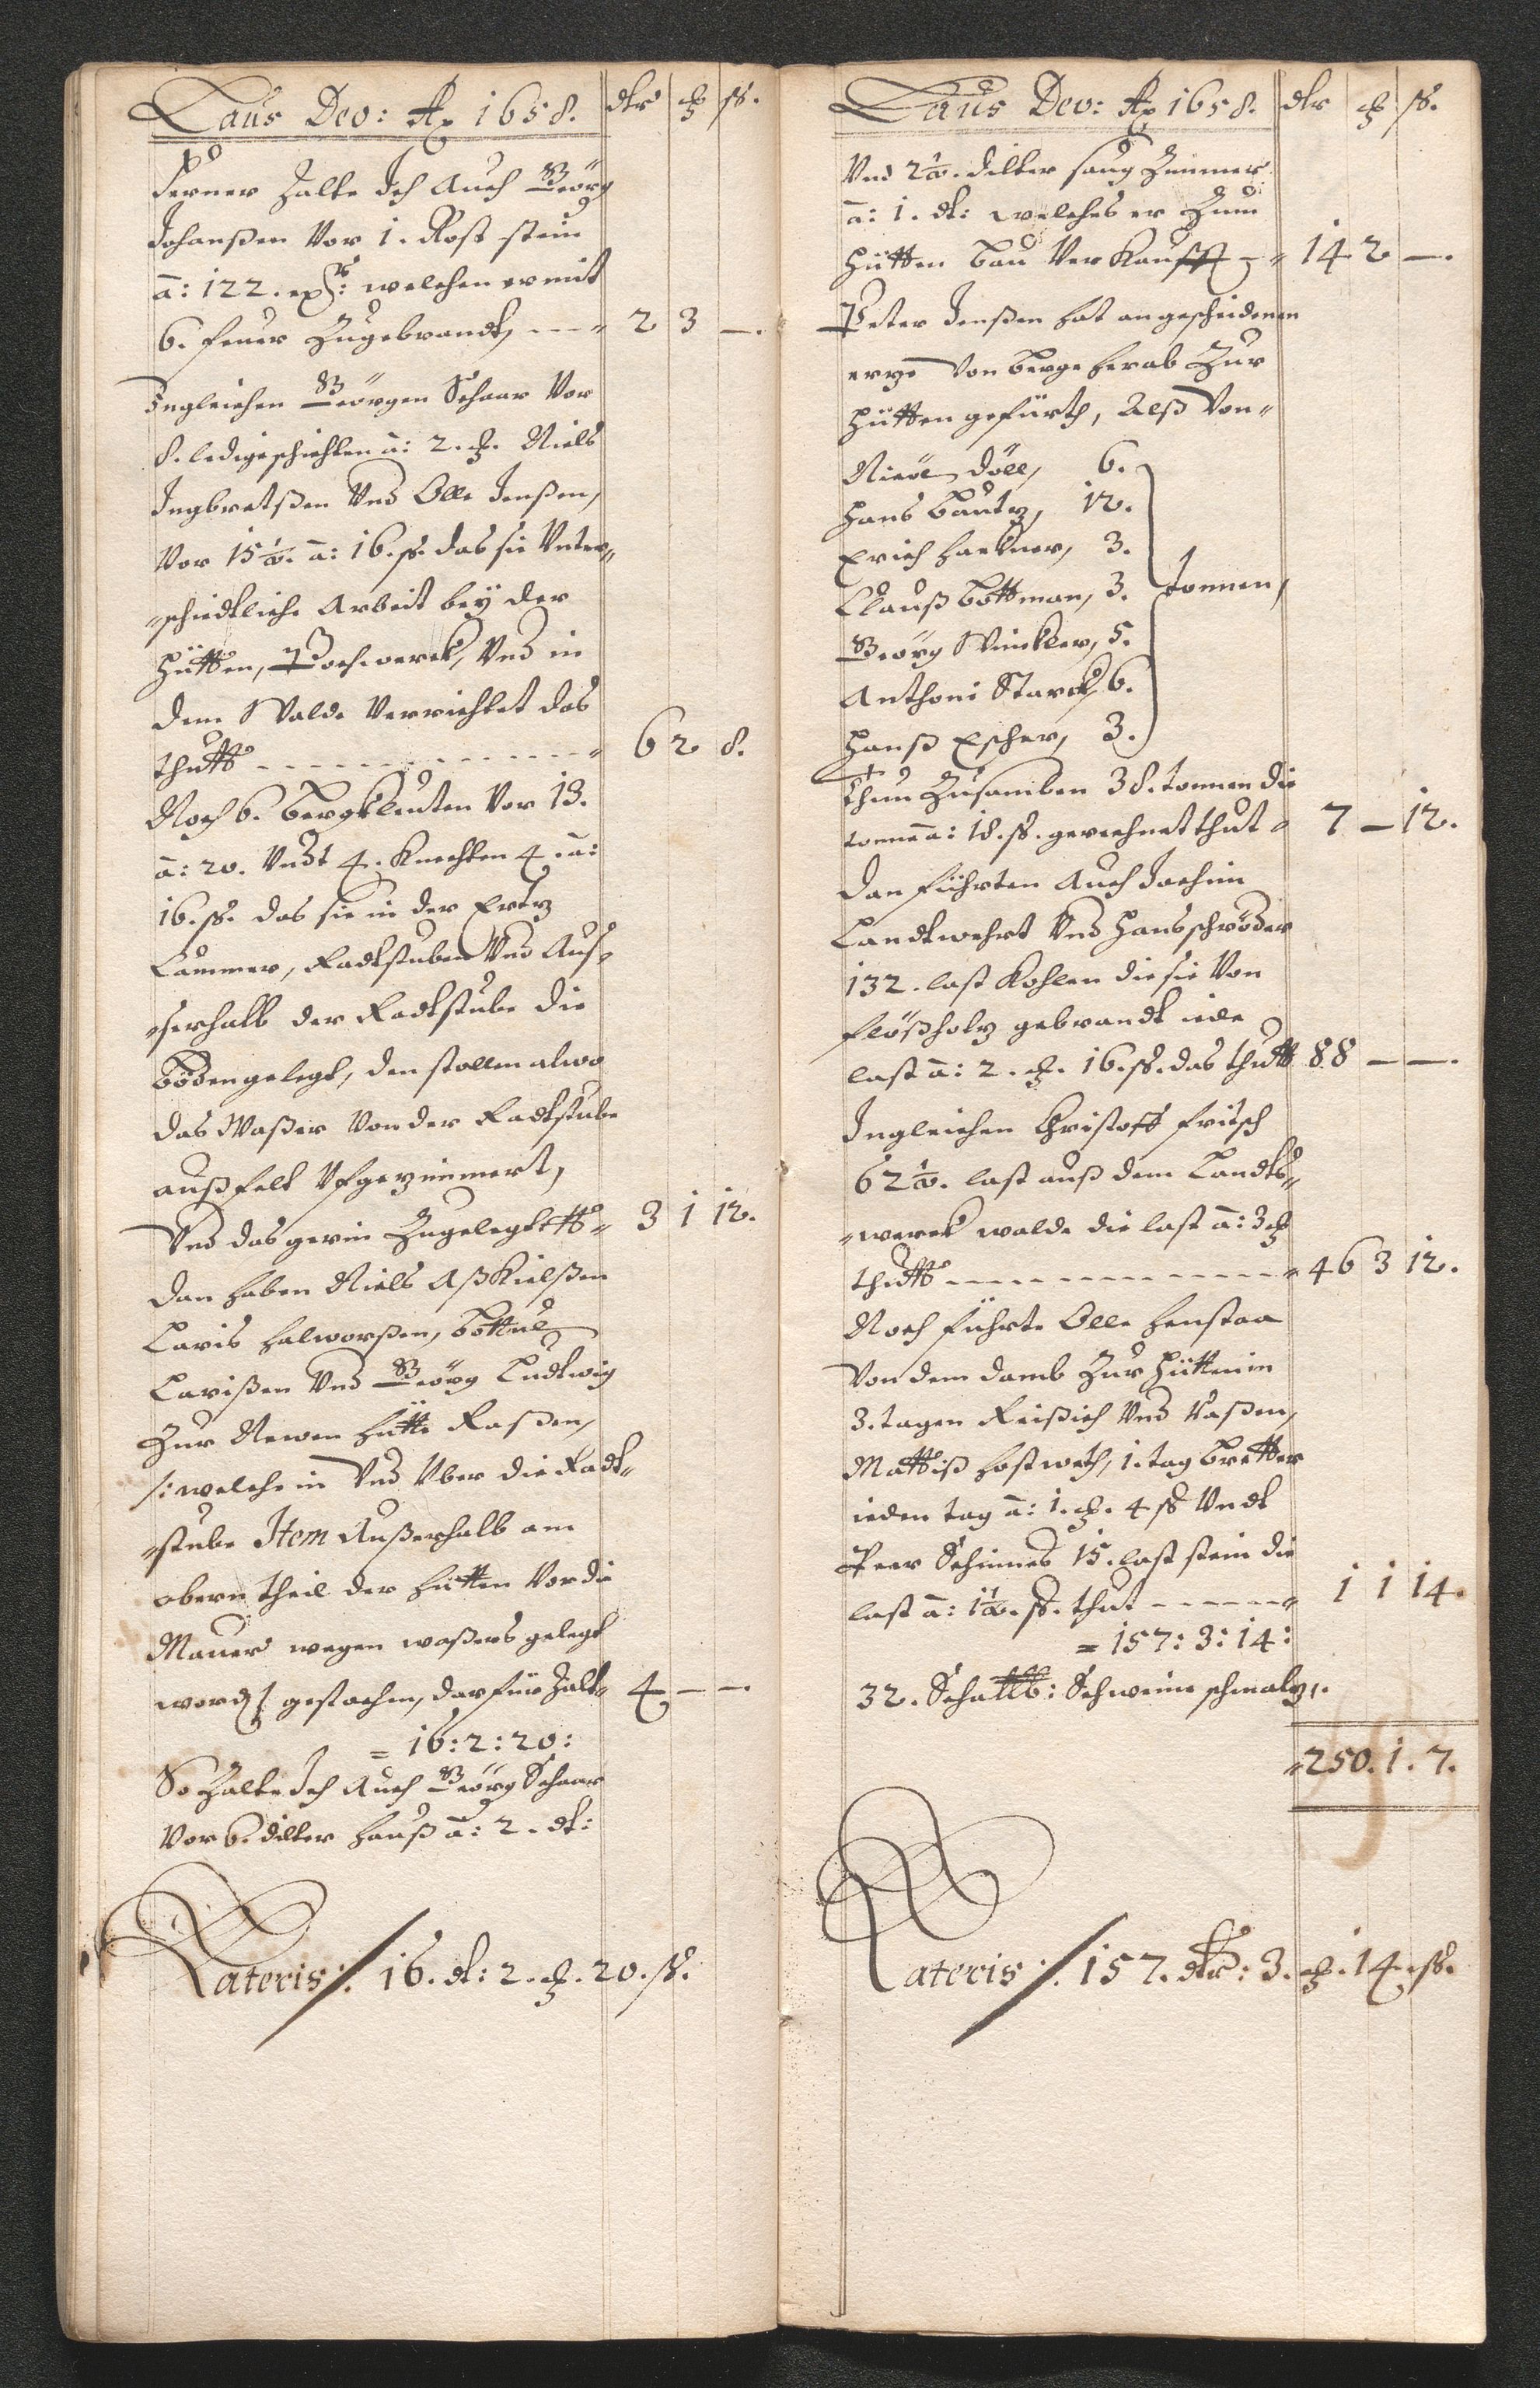 Laus Deo: Ao 1658. dlr ꝶ ß.
Ferner Zalte Ich Auch Geörg
Johanßen Vor 1. Rost stein
à: 122. welchen er mit
6. feuer Zugebrandt, --- 2 3 —.
Ingleichen Geörgen Schaar Vor
8. ledige schichten à: 2. ꝶ. Niels
Ingbretßen Vnd Olle Jenßen,
Vor 15½. à: 16. ß. das sie Vnter„
„schiedtliche Arbeit beÿ der
Hütten, Pochwerck, Vnd in
dem Walde Verrichtet das
thutt - - - - - - 6 2 8.
Noch 6. bergkleuten Vor 13.
à: 20. Vndt 4. Knechten 4. à:
16. ß. das sie in der Ertz
Cammer, Radtstuben Vnd Aus„
„serhalb der Radtstube die
böden gelegt, den stollen alwo
das Waßer Von der Radtstube
außfelt Vfgezimmert,
Vnd das gerin Zugelegt tt„ 3 1 12.
Dan haben Niels Aßkielßen
Laris halworßen, bottul
Larißen Vnd Geörg Ludtwig
Zur Newen hütte Raßen,
/: welche in Vnd Vber die Radt„
„stube Item Außerhalb am
obern theil der hütten Vor die
Mauer wegen waßers gelegt
word/ gestochen, darfür Zalt„ 4 — —.
= 16: 2: 20:
So Zalte Ich Auch Geörg Schaar
Vor 6. dilter hauß à: 2. dl:
Lateris:/. 16. dl: 2. ꝶ. 20. ß.
Laus Deo: Ao 1658. dlr ꝶ ß.
Vnd 2½. dilter saug Zimmer
à: 1. dl: welches er Zum
hütten bau Verkaufft -„ 14 2 —.
Peter Jenßen hat an gescheidenen
ertze Von berge herab Zur
hütten gefürth, Alß Von„
Nicol Döll, 6.
Hans bautz, 12.
Erich hackner, 3.
Clauß bottman, 3. tonnen,
Geörg Winckler, 5.
Anthoni Starck, 6.
Hanß Escher, 3.
Thun Zusamben 38. tonnen die
tonne à: 18. ß. gerechnet thut„ 7 — 12.
Dan führten Auch Jochim
Landtwehrt Vnd Hans schröder
132. last Kohlen die sie Von
flößholz gebrandt iede
last à: 2. ꝶ. 16. ß. das thutt 88 — —.
Ingleichen Christoff fritsch
62½. last auß dem Landts„
„werck walde die last à: 3 ꝶ
thutt - - - - - -„ 46 3 12.
Noch führte Olle henstaa
Von dem damb Zur hütten in
3. tagen Reißich Vnd Raßen,
Mattiß hostweth, 1. tag bretter
ieden tag à: 1. ꝶ. 4 ß Vndt
Peer Schinnes 15. last stein die
last à: 1½. ß. thut - - - -„ 1 1 14.
= 157: 3: 14:
32. Schallb: Schweine schmaltz,.
„250. 1. 7.
Lateris:/. 157. dlr: 3. ꝶ. 14. ß.